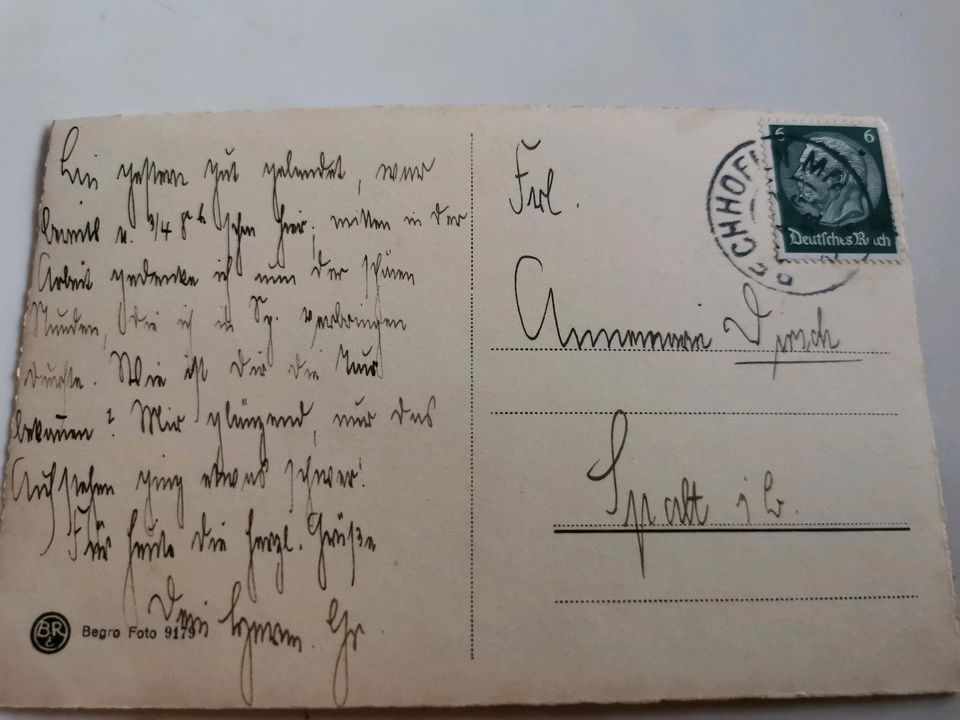 Bin gestern gut gelandet, war
bereits n. 3/4 8 h schon hier; mitten in der
Arbeit gedenke ich nun der schönen
Stunden, die ich in Sp. verbringen
durfte. Wie ist Dir die Tour
bekommen? Mir glänzend, nur das
Aufstehen ging etwas schwer!
Für heute die herzl. Grüße
Dein
BR
Begro Foto 9179
Frl.
Annemarie
Spalt i. B.
6 6
Deutsches Reich
BECHHOFEN